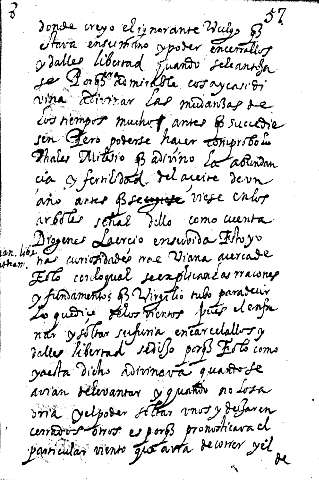 57
donde creyo el ignorante Vulgo q̃
estava en su mano y poder encerrallos
y dalles libertad quando se le antoja
se Porq̃ admirable cosa y casi di
vina adivinar las mudanzas de
los tiempos mucho antes q̃ succedie
sen Pero poderse hacer comprobolo
Thales Milesio q̃ adivino la abundan
cia y fertilidad del aceite de un
año antes q̃ se viese en los
arboles señal dello como cuenta
Diogenes Laercio en su vida Esto y o
tras curiosidades trae Viana acerca de
Eolo con lo qual se explican las rracones
y fundamentos q̃ Virgilio tubo para decir
lo que dice de los vientos pues el enfre
nar y soltar su furia encarcelallos y
dalles libertad se dijo porq̃ Eolo como
ya esta dicho adivinava quando se
avian de levantar y quando no los a
dria y el poder soltar unos y dejar en
cerrados otros es porq̃ pronosticava el
particular viento que avia de correr y el
de